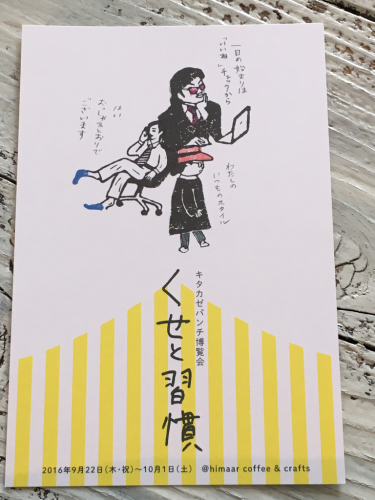 一日の始まりは
「いいね」チェックから
はい
おっしゃるとおりで
ございます
わたしの
いつものスタイル
キタカゼパンチ博覧会
くせと習慣
2016年9月22日(木・祝)〜10月1日(土) @himaar coffee & crafts